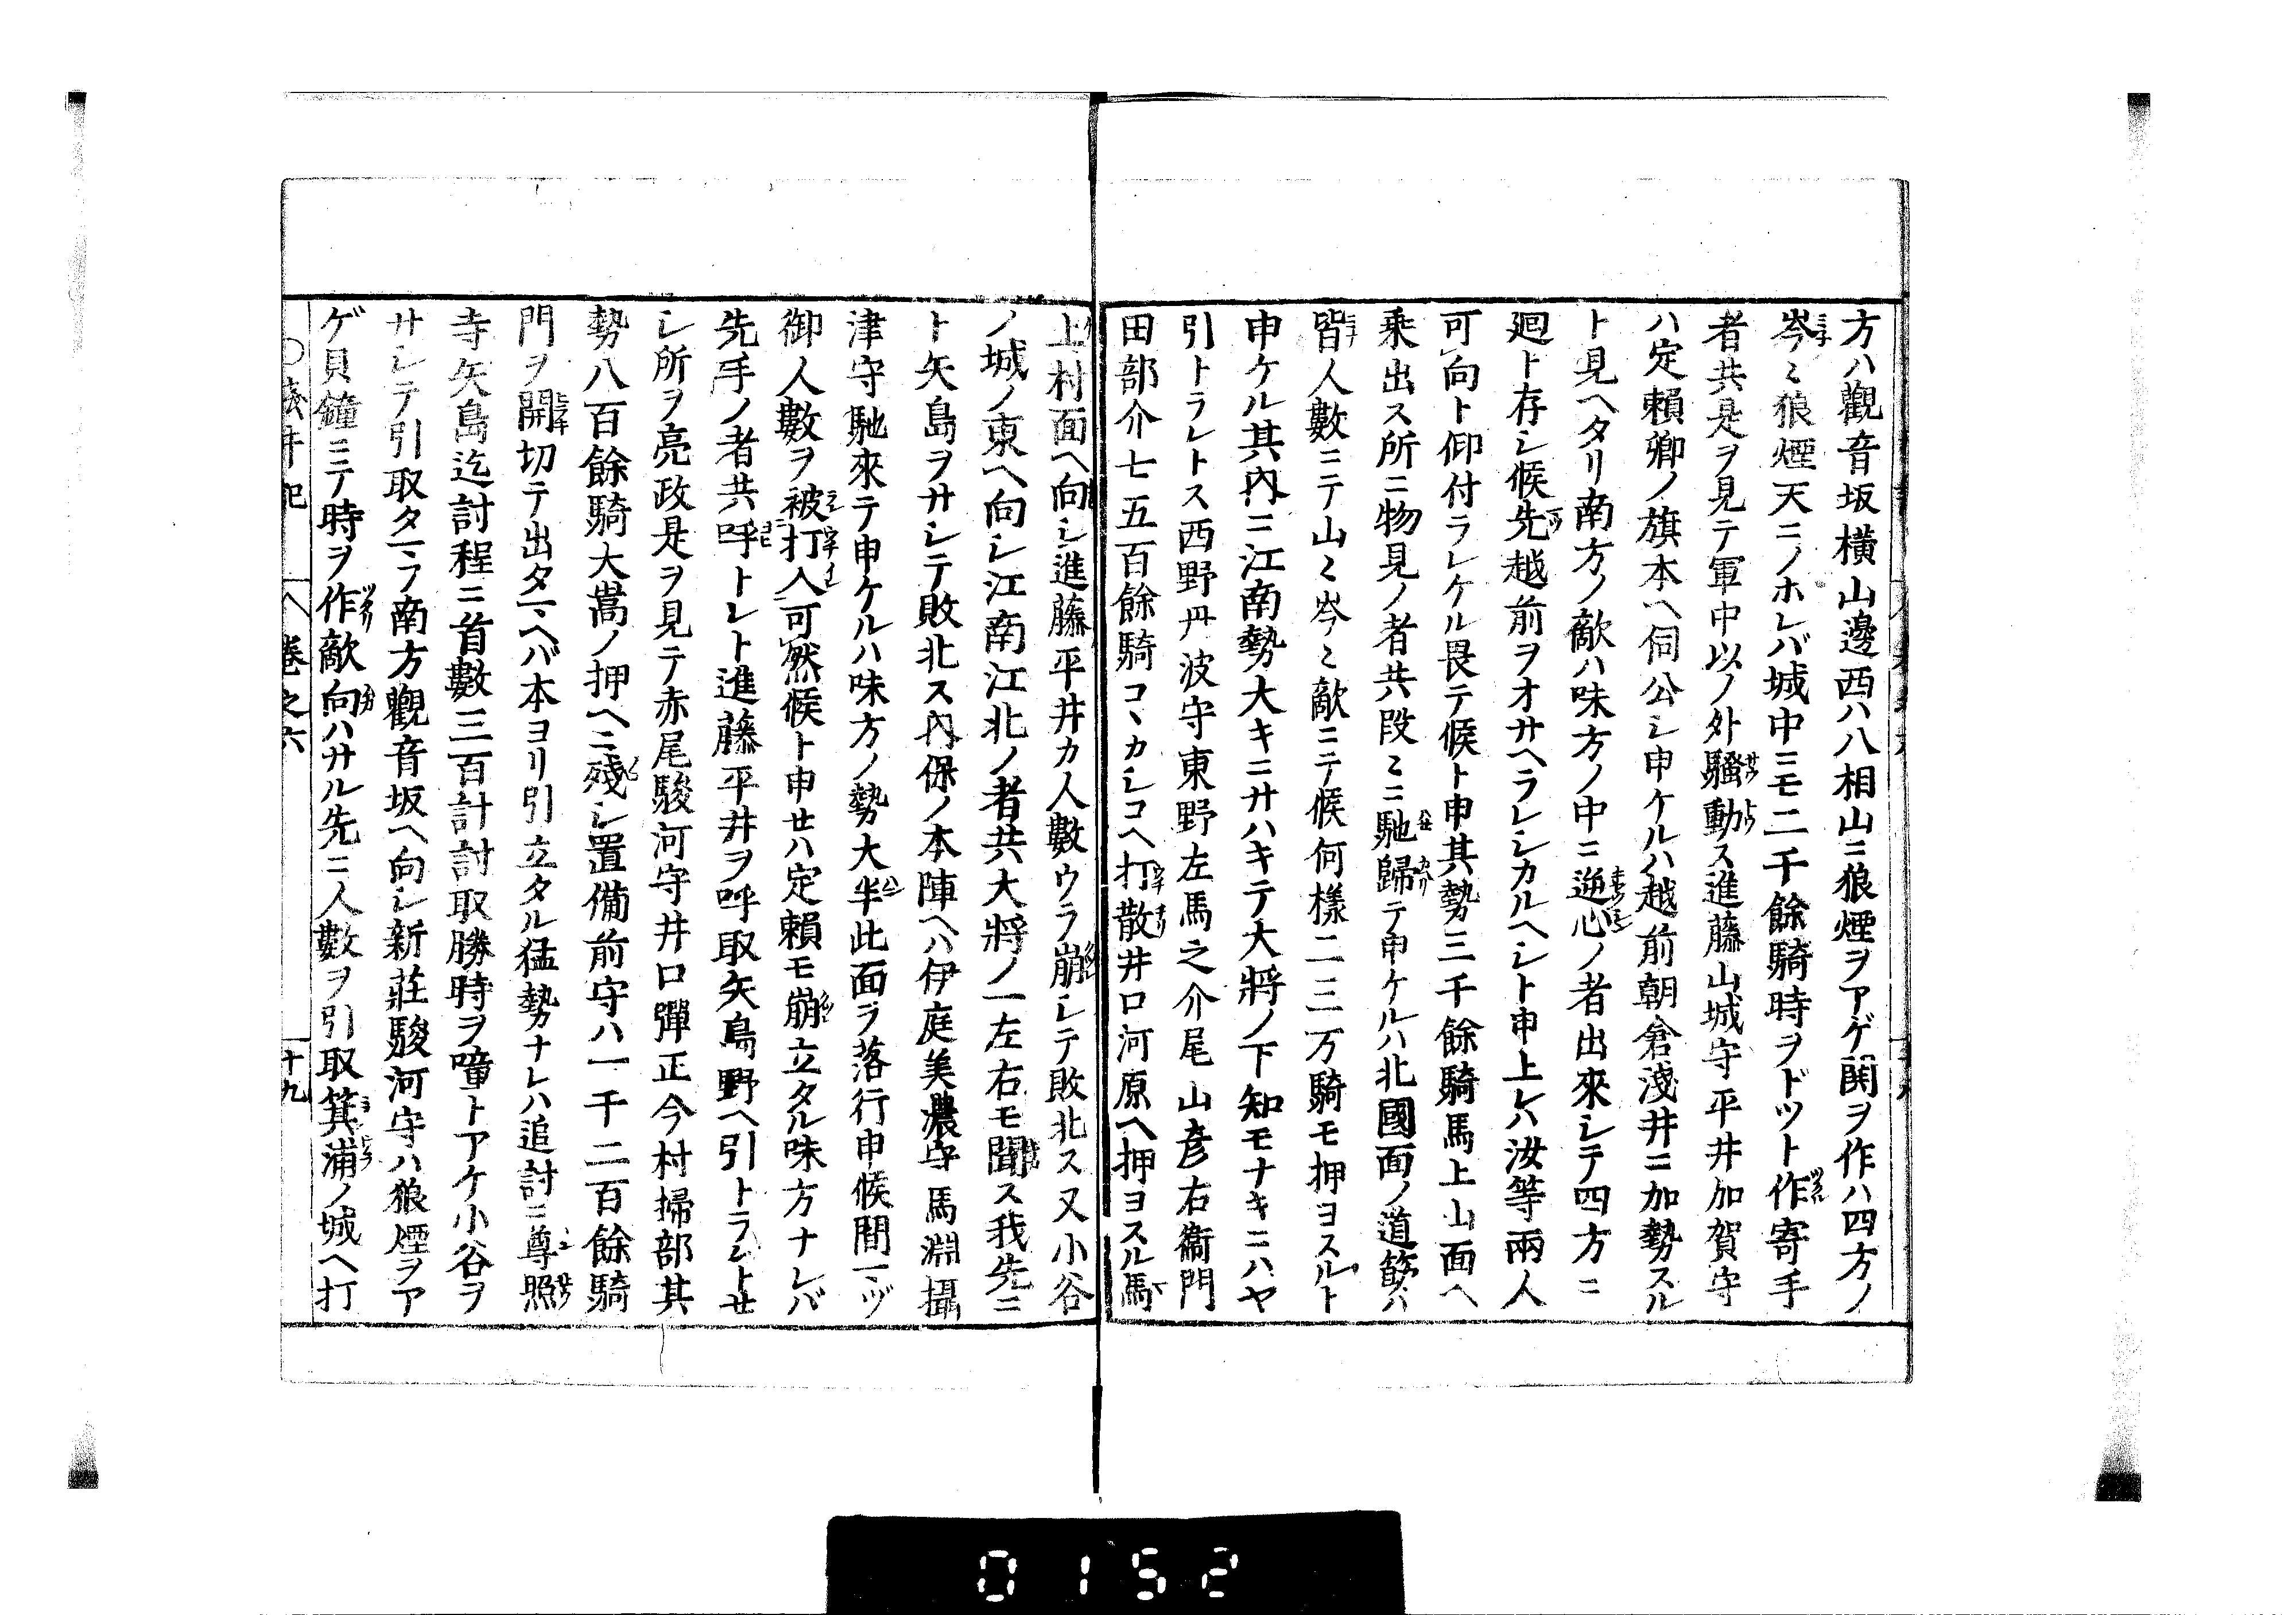 方ハ觀音坂橫山邊西ハ八相山ニ狼煙ヲアゲ鬨ヲ作ハ四方ノ
岑〻狼煙天ニノホレバ城中ニモ二千餘騎時ヲドツト作寄手
者共是ヲ見テ軍中以ノ外騷動ス進藤山城守平井加賀守
ハ定賴卿ノ旗本ヘ伺公シ申ケルハ越前朝倉淺井ニ加勢スル
ト見ヘタリ南方ノ敵ハ味方ノ中ニ逆心ノ者出來シテ四方ニ
廻ト存シ候先越前ヲオサヘラレシカルヘシト申上レハ汝等兩人
可向ト仰付ラレケル畏テ候ト申其勢三千餘騎馬上山面ヘ
乘出ス所ニ物見ノ者共段〻ニ馳歸テ申ケルハ北國面ノ道筋ハ
皆人數ニテ山〻岑〻敵ニテ候何樣二三万騎モ押ヨスルト
申ケル其內ニ江南勢大キニサハキテ大將ノ下知モナキニハヤ
引トラレトス西野丹波守東野左馬之介尾山彥右衞門
田部介七五百餘騎コヽカシコヘ打散井口河原ヘ押ヨスル馬
上村面ヘ向シ進藤平井カ人數ウラ崩シテ敗北ス又小谷
ノ城ノ東ヘ向シ江南江北ノ者共大將ノ一左右モ聞ス我先ニ
ト矢島ヲサシテ敗北ス內保ノ本陣ヘハ伊庭美濃守馬淵攝
津守馳來テ申ケルハ味方ノ勢大半此面ラ落行申候間一ヅ
御人數ヲ被打入可然候ト申せハ定賴モ崩立タル味方ナレバ
先手ノ者共呼トレト進藤平井ヲ呼取矢島野ヘ引トラレトせ
シ所ヲ亮政是ヲ見テ赤尾駿河守井口彈正今村掃部其
勢八百餘騎大嵩ノ押ヘニ殘シ置備前守ハ一千二百餘騎
門ヲ開切テ出タマヘバ本ヨリ引立タル猛勢ナレハ追討ニ尊照
寺矢島迄討程ニ首數三百計討取勝時ヲ噇トアケ小谷ヲ
サシテ引取タマフ南方觀音坂ヘ向シ新莊駿河守ハ狼煙ヲア
ゲ貝鐘ニテ時ヲ作敵向ハサル先ニ人數ヲ引取箕浦ノ城ヘ打
卷之六
十九
0152